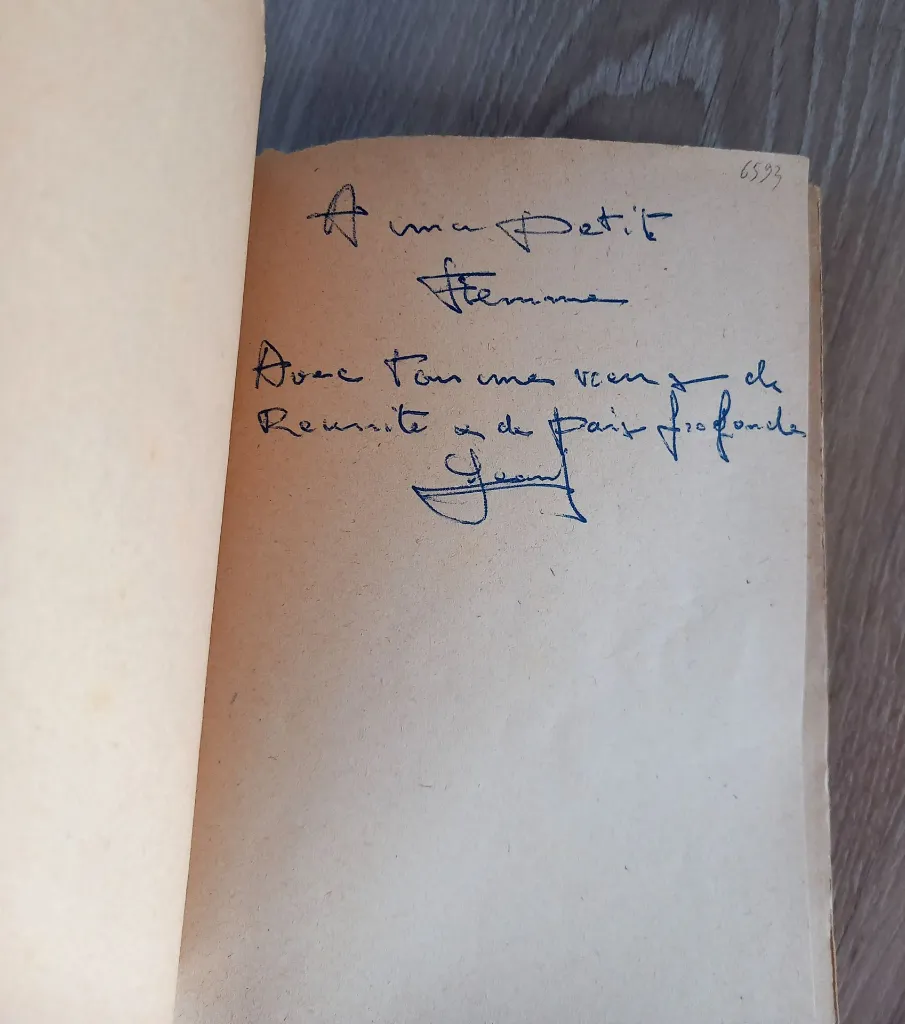 6593
A ma petite
Femme
Avec tous mes voeux de
Reussite et de paix profonde
Jean